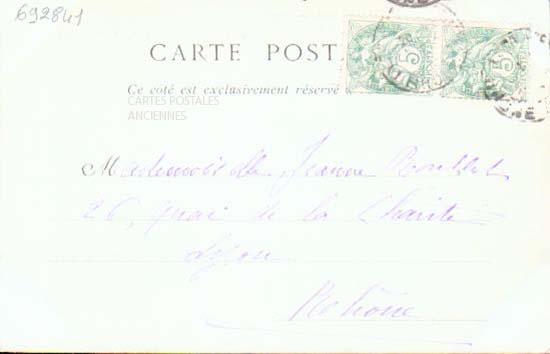 692841
CARTE POST
Ce côté est exclusivement réservé
CARTES POSTALES
ANCIENNES
5
5
Mademoiselle Jeanne
26, quai de la Charité
Lyon
Rhône